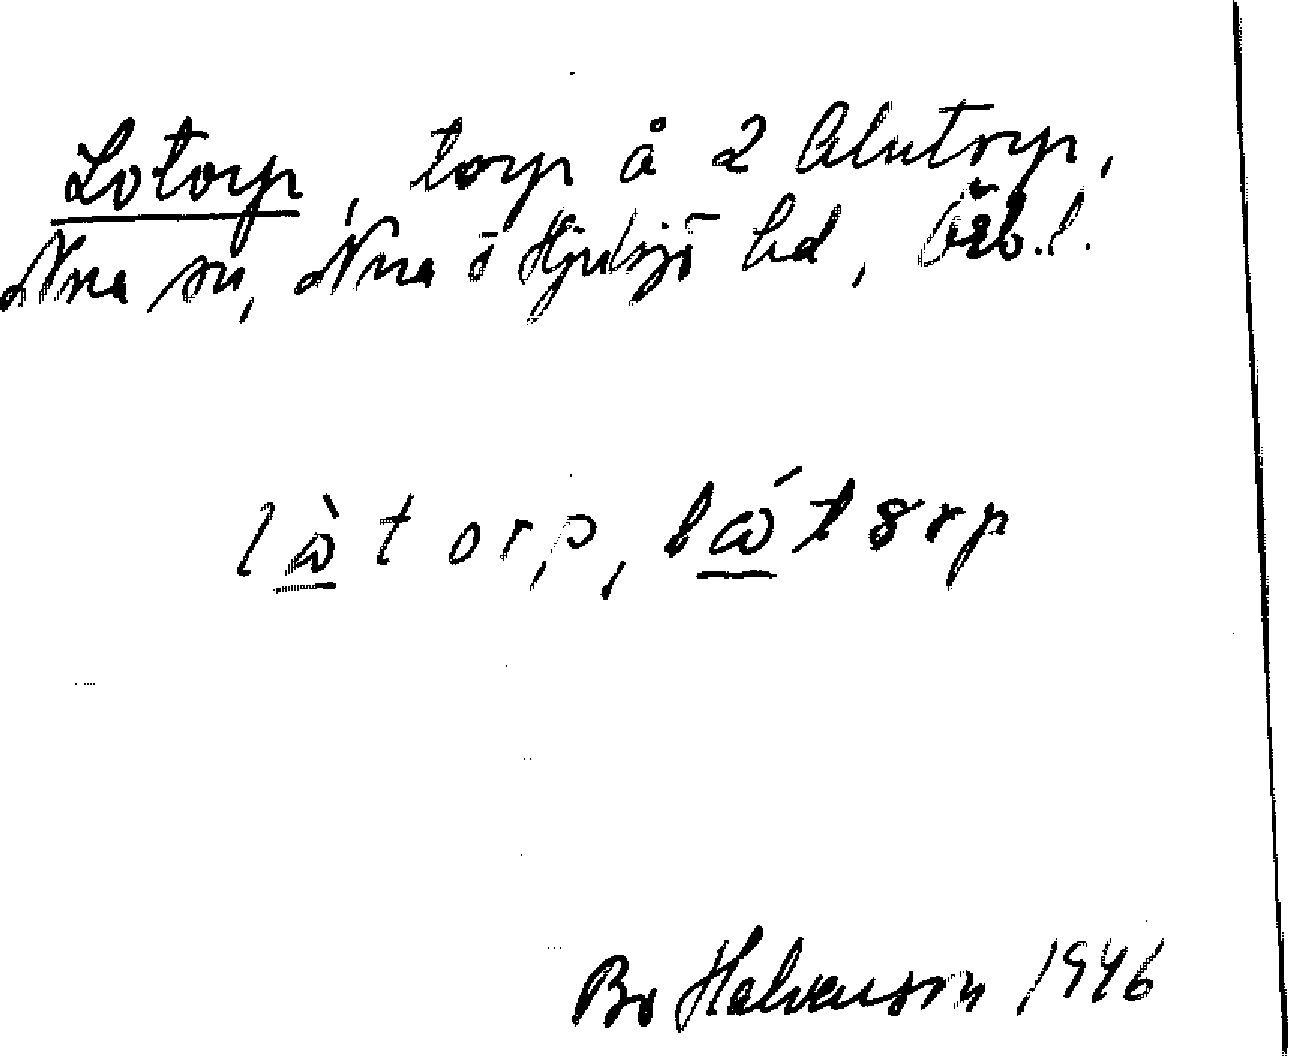 Lotorp, torp å 2 Alutorp,
Nora sn, Nora o Hjulsjö hd, Örb. l.
l ὼ t o r p, l ώ t 8 r p
Bo Halvarson 1946